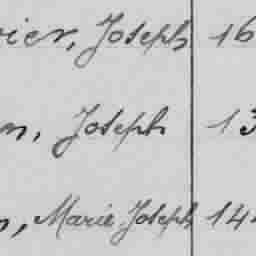 ier, Joseph 16
n, Joseph 13
n, Marie Joseph 144